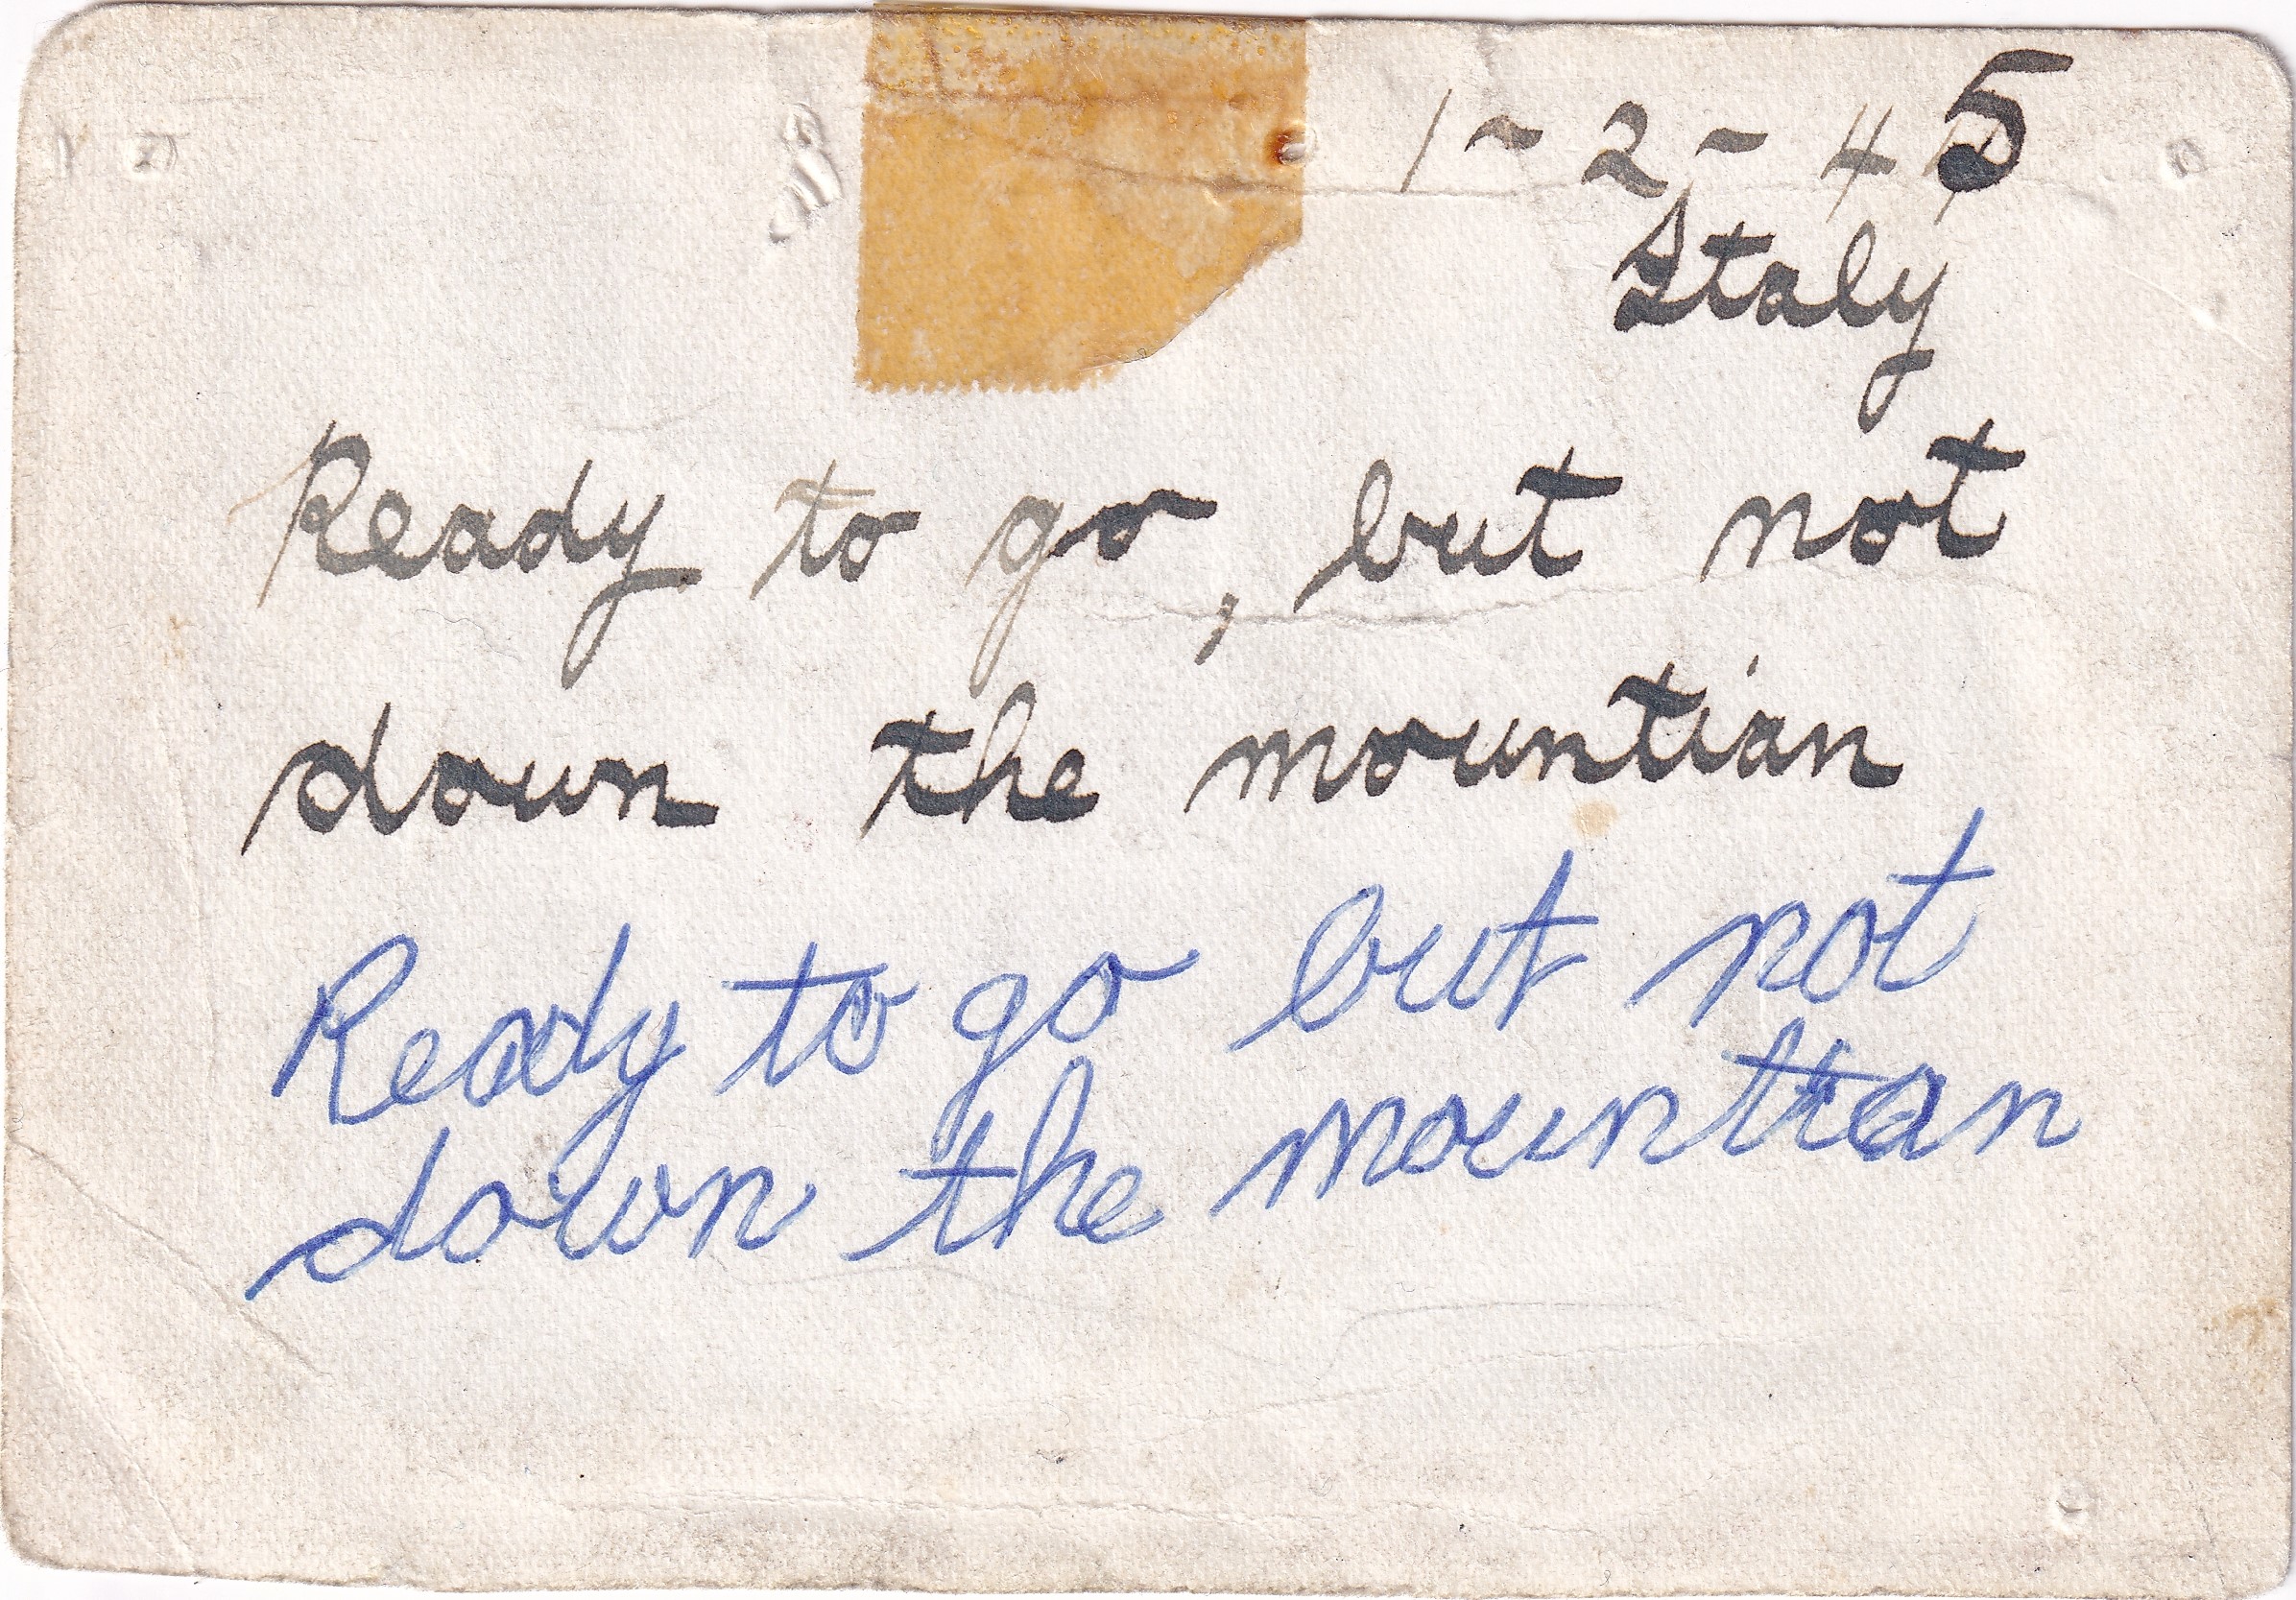 1-2-45
Italy
Ready to go, but not
down the mountian
Ready to go but not
down the mountian